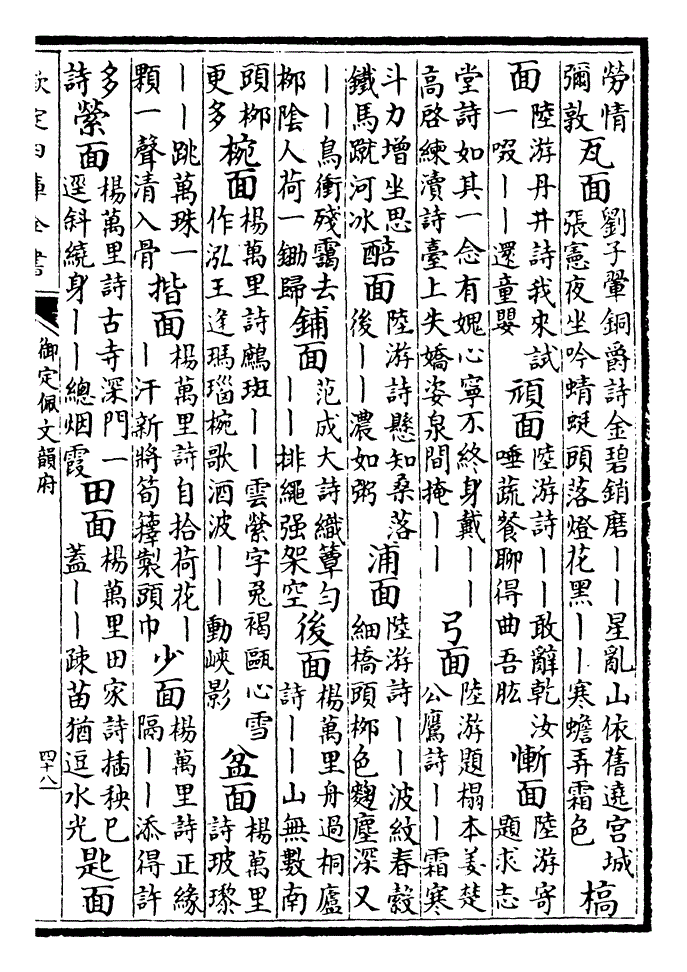 勞情彌敦 瓦面 劉子翬銅爵詩金碧銷磨——星亂山依舊遶宮城張憲夜坐吟蜻蜓頭落燈花黑——寒蟾弄霜色 槁
面 陸游丹井詩我來試一啜——還童嬰 頑面 陸游詩——敢辭乾汝唾蔬餐聊得曲吾肱 慚面 陸游寄題求志
堂詩如其一念有媿心寧不終身戴——高啓練瀆詩臺上失嬌姿泉間掩—— 弓面 陸游題榻本姜楚公鷹詩——霜寒
斗力增坐思鐵馬蹴河冰 醅面 陸游詩懸知桑落後——濃如粥 浦面 陸游詩——波紋春縠細橋頭柳色麴塵深又
——鳥衝殘靄去柳陰人荷一鋤歸 鋪面 范成大詩織簟勻——排繩强架空 後面 楊萬里舟過桐廬詩——山無數南
頭柳更多 椀面 楊萬里詩鷓斑——雲縈字兔褐甌心雪作泓王逢瑪瑙椀歌酒波——動峽影 盆面 楊萬里詩玻瓈
——跳萬珠一顆一聲清入骨 揩面 楊萬里詩自拾荷花——汗新將筍籜製頭巾 少面 楊萬里詩正緣隔——添得許
多詩 縈面 楊萬里詩古寺深門一逕斜繞身——總烟霞 田面 楊萬里田家詩插秧已蓋——疎苗猶逗水光 匙面
欽定四庫全書 御定佩文韻府 四十八